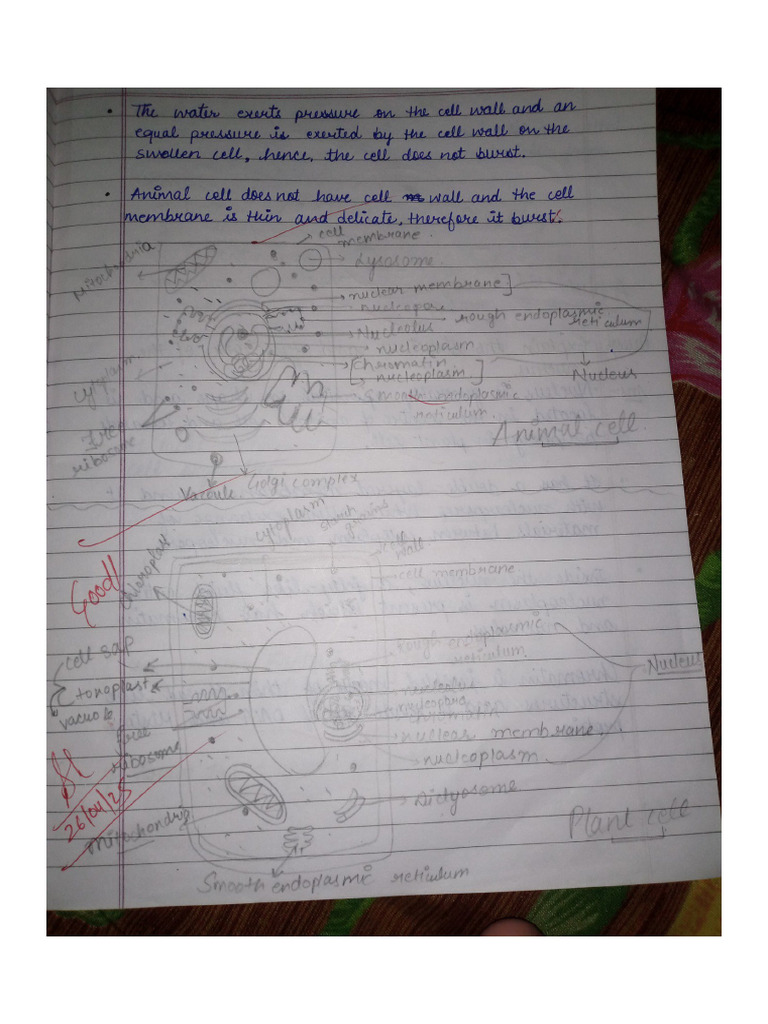 • The water exerts pressure on the cell wall and an
equal pressure is exerted by the cell wall on the
swollen cell, hence, the cell does not burst.
• Animal cell does not have cell wall and the cell
membrane is thin and delicate, therefore it burst.
cell membrane
Mitochondria
Lysosome
nuclear membrane
nucleopore
rough endoplasmic reticulum
Nucleolus
nucleoplasm
Chromatin
nucleoplasm
Nucleus
cytoplasm
Smooth endoplasmic
reticulum
free
ribosome
Animal cell
Golgi complex
Vacoule
cytoplasm
starch
cell
wall
Good
chloroplast
cell membrane
cell sap
Rough endoplasmic
reticulum
Nucleus
tonoplast
vacuole
nuclear membrane
free
ribosome
nucleoplasm
26/04/25
Didyosome
mitochondria
Plant cell
Smooth endoplasmic reticulum